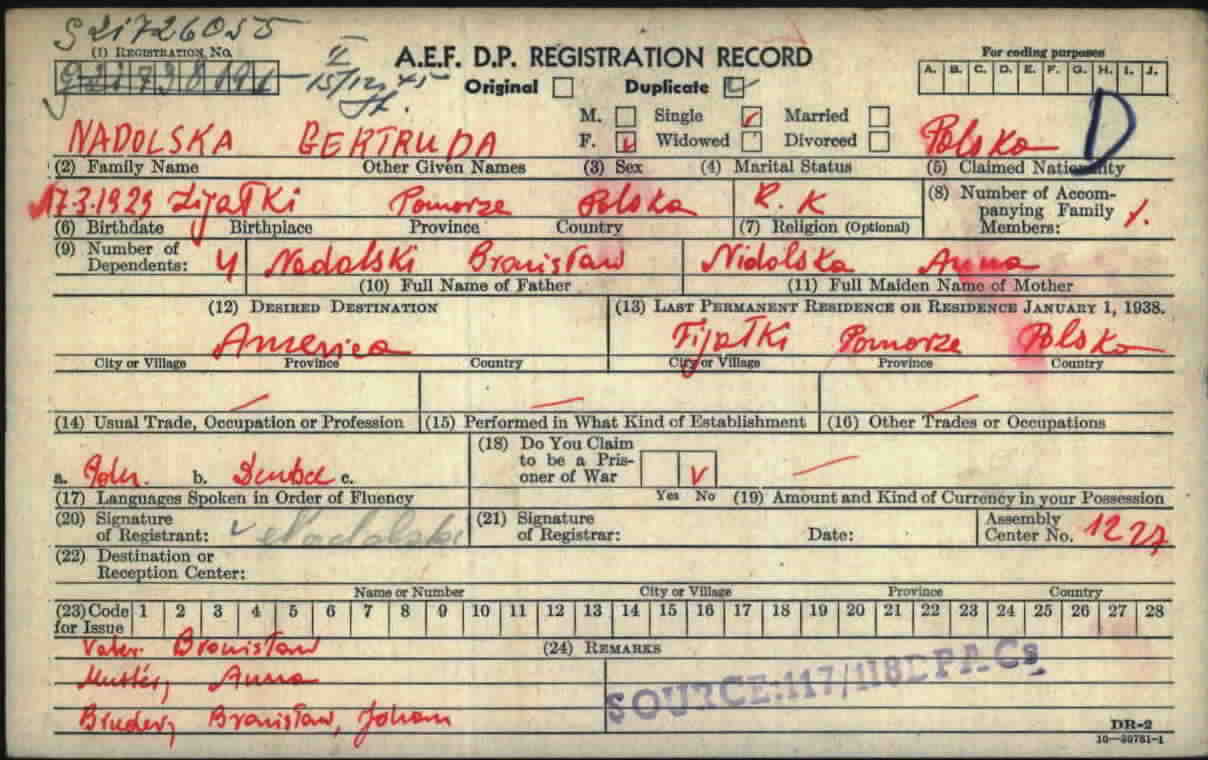 S21726055
(1) Registration No. II A.E.F. D.P. REGISTRATION RECORD For coding purposes
15/12.45 Original Duplicate A. B. C. D. E. F. G. H. I. J.
M. Single ✓ Married D
NADOLSKA GERTRUDA F. v Widowed Divorced Polska
(2) Family Name Other Given Names (3) Sex (4) Marital Status (5) Claimed Nationality
17.3.1929 Fijałki Pomorze Polska R. K (8) Number of Accompanying Family Members: 1.
(6) Birthdate Birthplace Province Country (7) Religion (Optional)
(9) Number of Dependents: 4 Nadolski Bronisław Nidolska Anna
(10) Full Name of Father (11) Full Maiden Name of Mother
(12) Desired Destination (13) Last Permanent Residence or Residence January 1, 1938.
America Fijałki Pomorze Polska
City or Village Province Country City or Village Province Country
(14) Usual Trade, Occupation or Profession (15) Performed in What Kind of Establishment (16) Other Trades or Occupations
(18) Do You Claim to be a Prisoner of War v
a. b. c.
(17) Languages Spoken in Order of Fluency Yes No (19) Amount and Kind of Currency in your Possession
(20) Signature of Registrant: v Nadolski (21) Signature of Registrar: Date: Assembly Center No. 12 27
(22) Destination or Reception Center:
Name or Number City or Village Province Country
(23) Code for Issue 1 2 3 4 5 6 7 8 9 10 11 12 13 14 15 16 17 18 19 20 21 22 23 24 25 26 27 28
Vater. Bronisław (24) Remarks
Mutter, Anna
SOURCE:117/118DPACs
Bruder, Bronisław, Johann
DR-2
16—39781-1